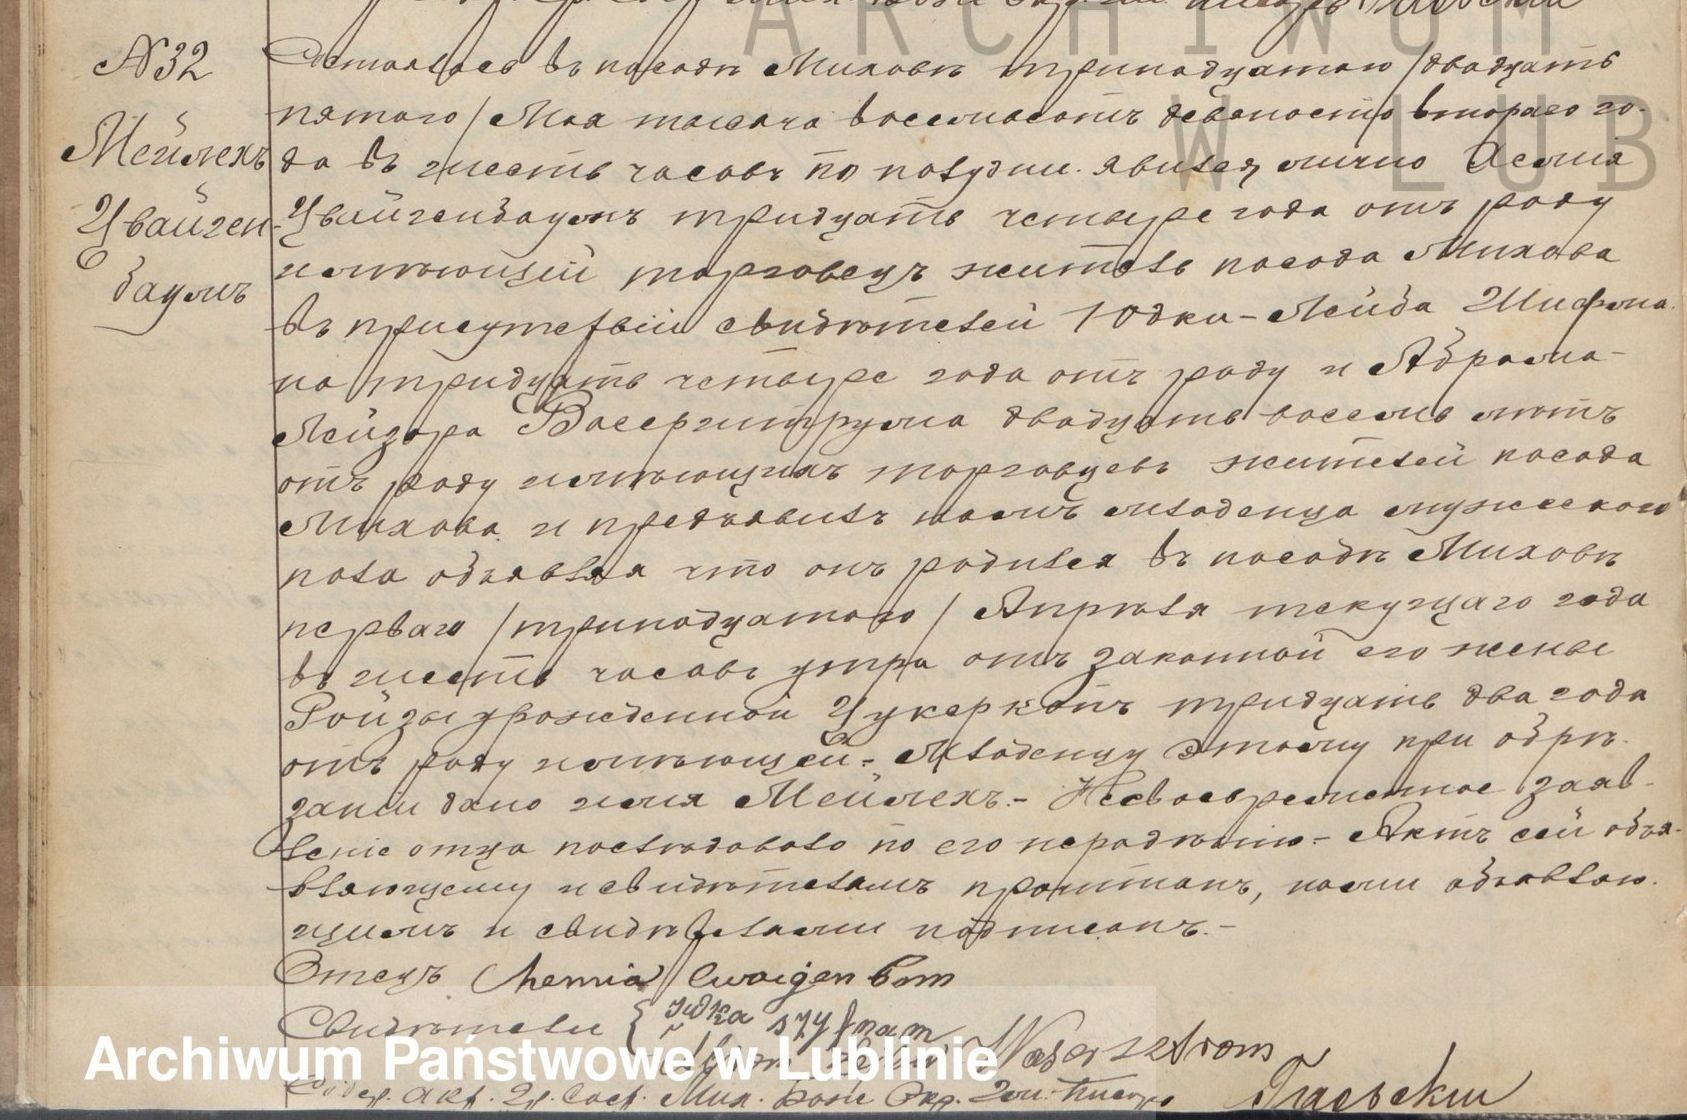 N 32
Мейлехъ
Цвайген-
баумъ
Состоялось въ посадѣ Миховѣ тринадцатаго /двадцать
пятаго/ Мая тысяча восемьсотъ девяносто втораго го-
да въ шесть часовъ по полудни. явился лично Хемия
Цвайгенбаумъ тридцать четыре года отъ роду
имѣющій торговецъ житель посада Михова
въ присутствіи свидѣтелей Юдки-Лейба Шифма
на тридцать четыре года отъ роду и Абрама-
Лейзора Васерштрума двадцать восемь лѣтъ
отъ роду имѣющихъ торговцевъ жителей посада
Михова и предъявилъ намъ младенца мужескаго
пола объявляя что онъ родился въ посадѣ Миховѣ
перваго /тринадцатаго/ Апрѣля текущаго года
въ шесть часовъ утра отъ законной его жены
Ройзы урожденной Цукеркопъ тридцать два года
отъ роду имѣющей.- Младенцу этому при обрѣ-
заніи дано имя Мейлехъ.- Несвоевременное заяв-
леніе отца послѣдовало по его нерадѣнію.- Актъ сей объя-
вляющему и свидѣтелямъ прочитанъ, нами объявляю-
щимъ и свидѣтелями подписанъ.-
Отецъ Chemia Cwaigenbom
Свидѣтели { Judka Szyfman
Wasersztrom
Содер. акт. гр. сост. Мих. Бож. Окр. Гми. Писарь Гаевскій
ARCHIWUM
W LUB
Archiwum Państwowe w Lublinie